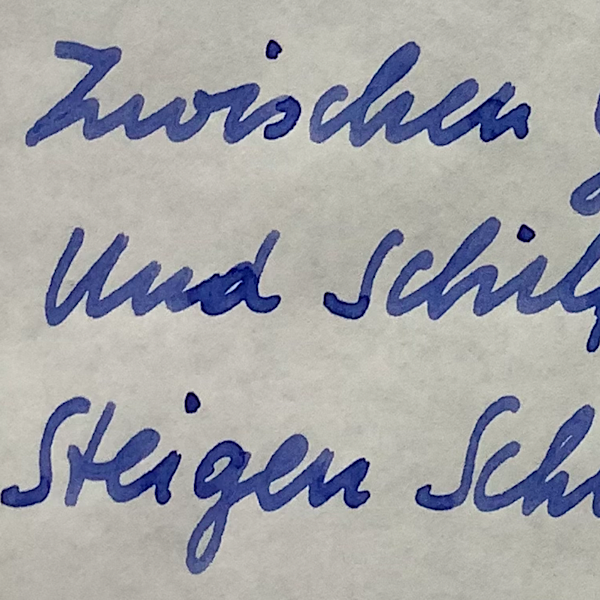 Zwischen
Und Schilf
Steigen